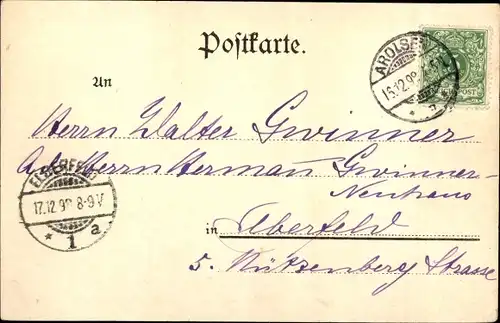 Postkarte.
AROLSEN
16.12.98
* a
POST
An
Herrn Walter Gwinner
Herrn Herman Gwinner-
Neuhaus
ELBERFELD
17.12.98 8-9V
* 1 a
in Elberfeld
5. Nützenberg Strasse